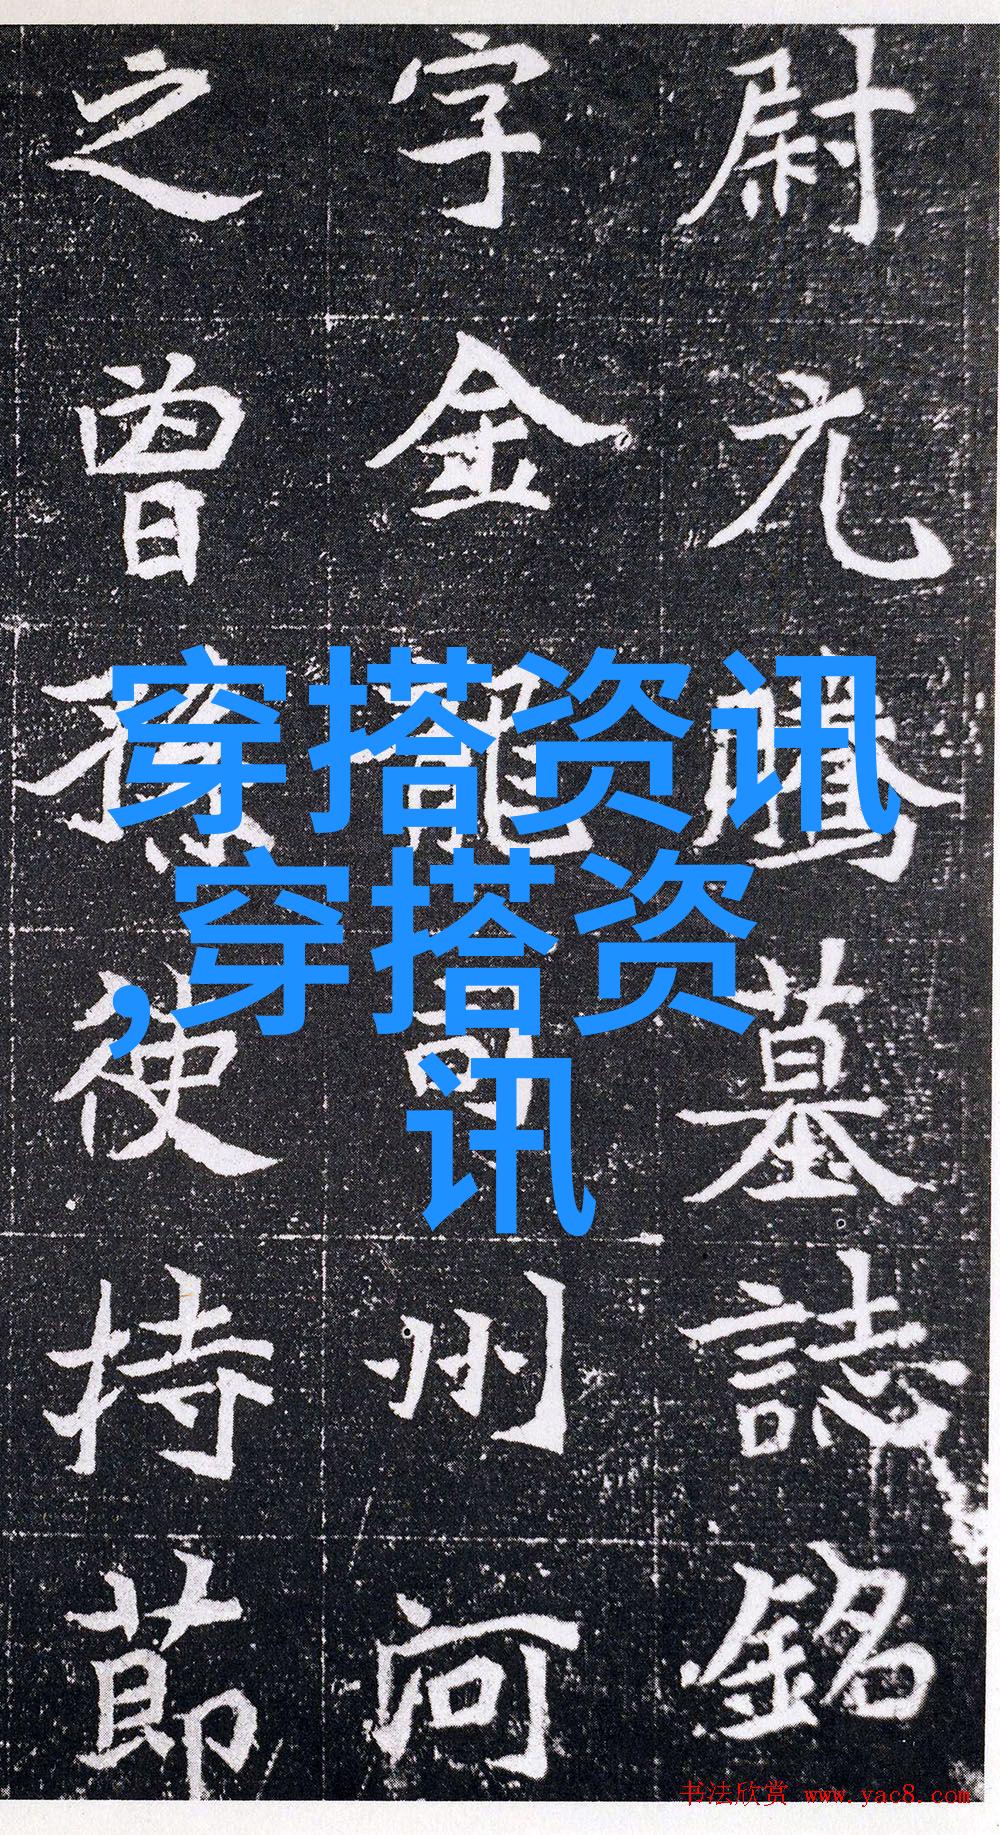 尉元騰墓誌銘
字金龍司州河
之曾孫使持節
穿搭资讯
,穿搭资
讯
书法欣赏 www.yac8.com